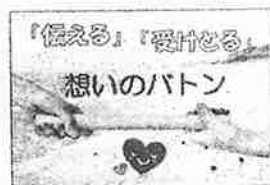 『伝える』『受けとる』
想いのバトン